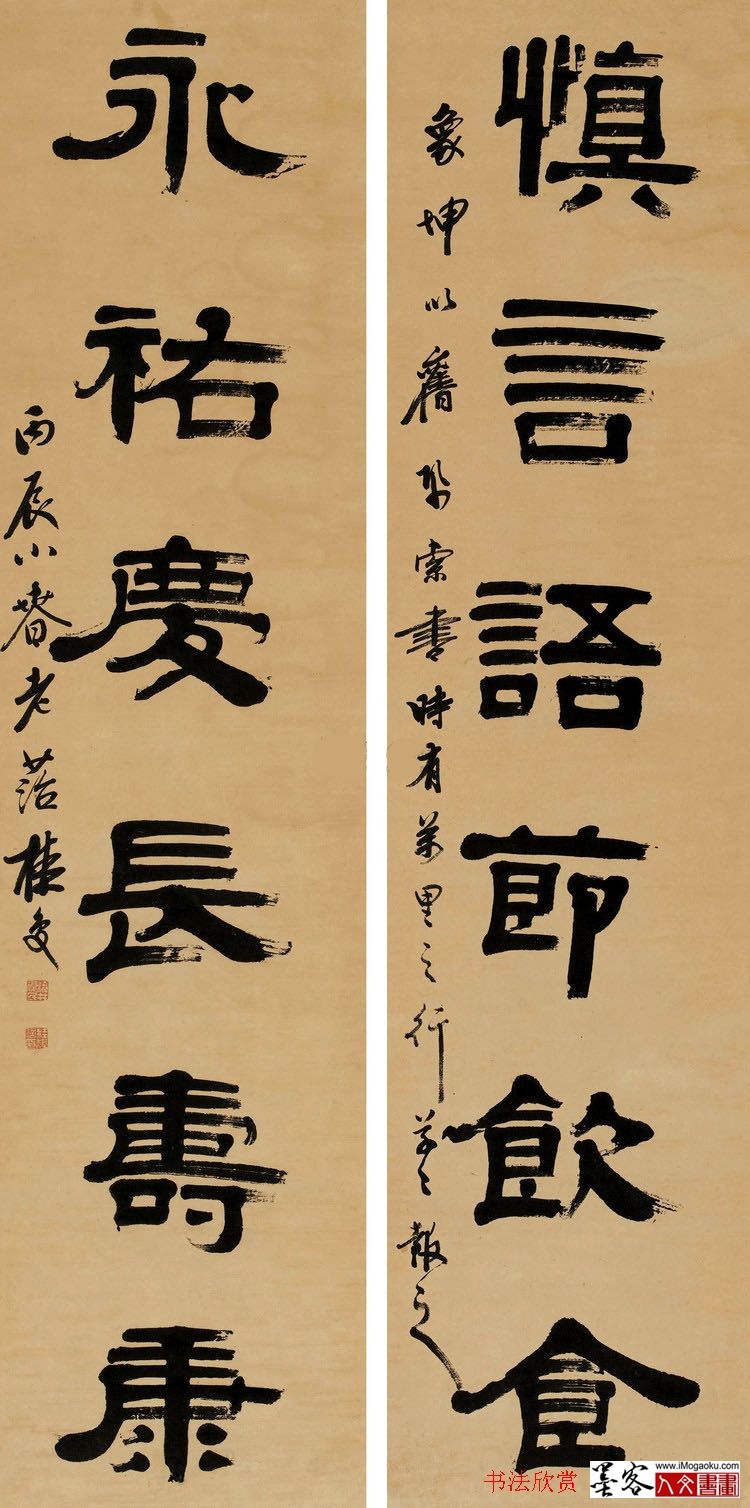 慎言語節飲食
象坤以舊紙索書時有萬里之行草草報之
永祐慶長壽康
丙辰小春老菭桂复
书法欣赏
墨客
www.iMogaoku.com
人文書畫